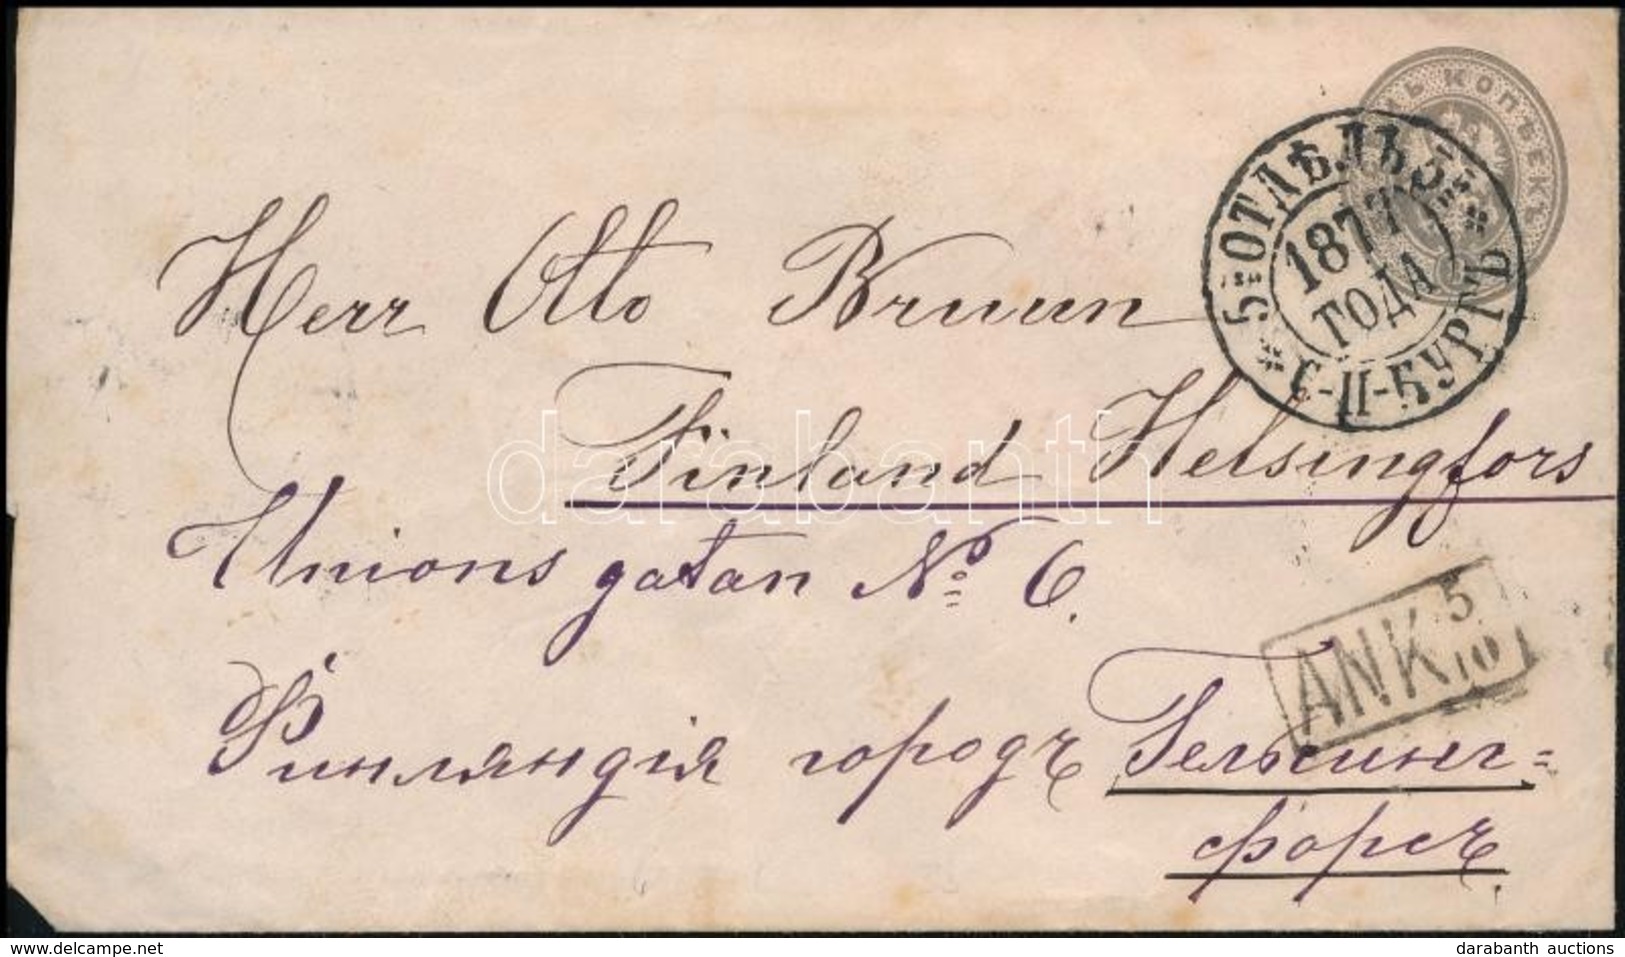 КОПѢЕКЪ
5 ОТДѢЛЪ 5
1877
ГОДА
С-П-БУРГЪ
Herr Otto Bruun
Finland Helsingfors
Unionsgatan No 6.
ANK 5/10
Финляндія городъ Гельсинг=
форсъ.
darabanth
delcampe.net
darabanth auctions